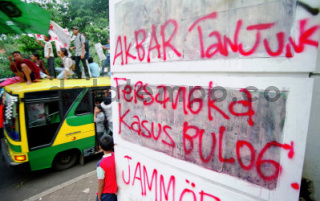 AKBAR TANJUNK
Persangka
Kasus BULOG.
JAMMÖR